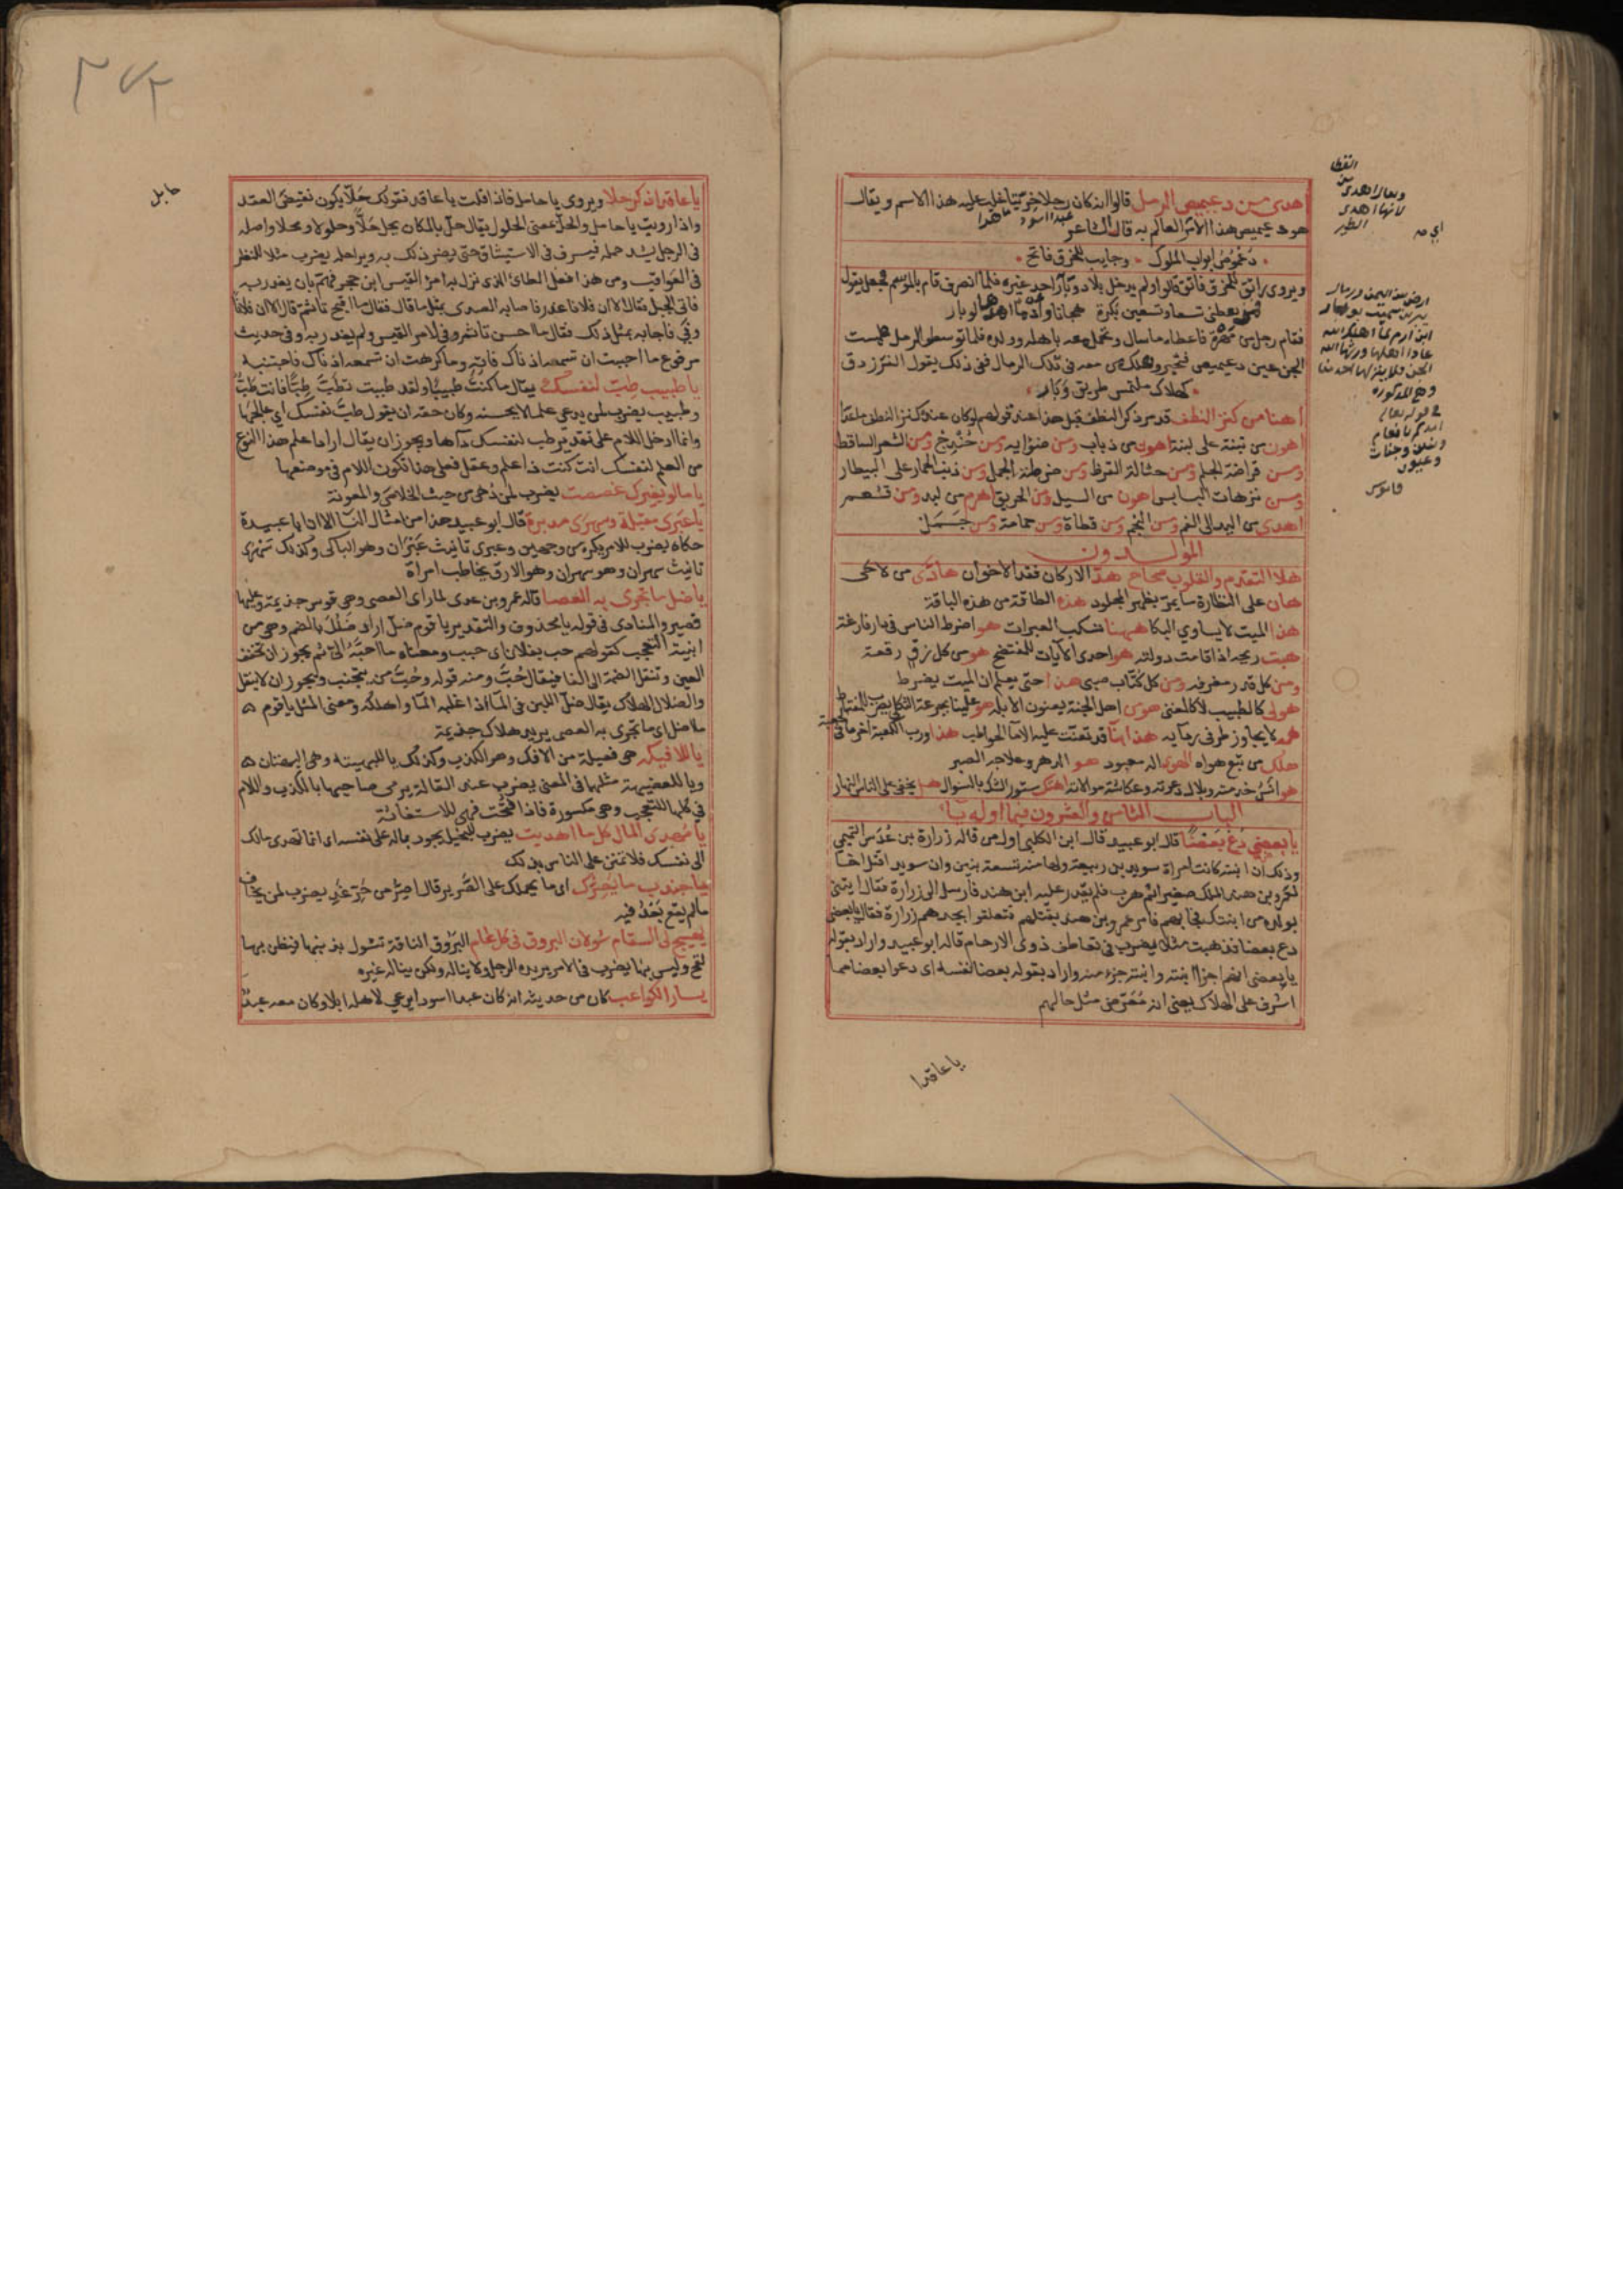 اهدى من دعيميص الرمل قالوا انه كان رجلا خريتا غلب عليه هذا الاسم ويقال
هو دعيميص هذا الامر العالم به قال الشاعر
دعموص ابواب الملوك وجايب للخرق فاتح
ويروى راتق للخرق فاتق قالوا ولم يدخل بلاد وبار احد غيره فلما انصرف قام بالموسم فجعل يقول
فمن يعطني تسعا وتسعين بكرة هجانا وادما اهدها لوبار
فقام رجل من مهرة فاعطاه ما سال وتحمل معه باهله وولده فلما توسطو الرمل طمست
الجن عين دعيميص فتحير وهلك من معه في تلك الرمال ففي ذلك يقول الفرزدق
كهلاك ملتمس طريق وبار
اهنا من كنز النطف قد مر ذكر النطف قبل هذا عند قولهم لو كان عنده كنز النطف ما عدا
اهون من تبنة على لبنة اهون من ذباب ومن ضواية ومن حندج ومن الشعر الساقط
ومن قراضة الجلم ومن حثالة القرظ ومن ضرطة الجمل ومن ذنب الحمار على البيطار
ومن ترهات البسابس اهون من السيل ومن الحريق اهرم من لبد ومن قشعم
اهدى من اليد الى الفم ومن النجم ومن قطاة ومن حمامة ومن جمل
المولدون
هلا التقدم والقلوب صحاح هد الاركان فقد الاخوان
هان على النظارة ما يمر بظهر المجلود هذه الطاقة من هذه الباقة
هذا الميت لا يساوي البكا ههنا تسكب العبرات هو اضرط الناس في دار فارغة
هبت ريحه اذا قامت دولته هو احدى الايات للمفتضح هو من كل زق رقعة
ومن كل قدر مغرفة ومن كل كتاب صبي هذا حتى يعلم ان الميت يضرط
همه لا يجاوز طرفي ردايه
هلك من تبع هواه الهوى اله معبود هو الدهر وعلاجه الصبر
اهتك ستور الشك بالسوال هل يخفى على الناس النهار
الباب الثامن والعشرون فيما اوله يا
يا بعضي دع بعضا قال ابو عبيد قال ابن الكلبي اول من قاله زرارة بن عدس التميمي
وذلك ان ابنته كانت امراة سويد بن ربيعة ولها منه تسعة بنين وان سويدا قتل اخا
لعمرو بن هند الملك صغيرا ثم هرب فلم يقدر عليه ابن هند فارسل الى زرارة فقال ايتني
بولده من ابنتك فجا بهم فامر عمرو بن هند بقتلهم فتعلقوا بجدهم زرارة فقال يا بعضي
دع بعضا فذهبت مثلا يضرب في تعاطف ذوي الارحام قاله ابو عبيد واراد بقوله
يا بعضي انهم اجزا ابنته وابنته جزء منه واراد بقوله بعضا نفسه اي دعوا بعضا مما
اشرف على الهلاك يعني انه معرض مثل حالهم
يا عاقدا
يا عاقد اذكر حلا ويروى يا حامل فاذا قلت يا عاقد فقولك حلا يكون نقيض العقد
واذا رويت يا حامل والحل بمعنى الحلول يقال حل بالمكان يحل حلا وحلولا ومحلا واصله
في الرجل يشد حمله فيسرف في الاستيثاق حتى يضر ذلك به وبراحله يضرب مثلا للنظر
في العواقب ومن هذا فعل الطائي الذي نزل به امرؤ القيس ابن حجر فهم بان يغدر به
فاتى الجبل فقال الا ان فلانا غدر فاجابه الصدى بمثل ما قال فقال ما اقبح تا ثم قال الا ان فلانا
وفى فاجابه بمثل ذلك فقال ما احسن تا ثم وفى لامرئ القيس ولم يغدر به وفي حديث
مرفوع ما احببت ان تسمعه اذناك فاته وما كرهت ان تسمعه اذناك فاجتنبه
يا طبيب طب لنفسك يقال ما كنت طبيبا ولقد طببت تطب طبا فانت طب
وطبيب يضرب لمن يدعي علما لا يحسنه وكان حقه ان يقول طب نفسك اي عالجها
وانما ادخل اللام على تقدير طب لنفسك داها ويجوز ان يقال اراد علم هذا النوع
من العلم لنفسك ان كنت ذا علم وعقل فعلى هذا تكون اللام في موضعها
يا ما لو بغيرك غصصت يضرب لمن دهي من حيث الخلاص والمعونة
يا عبرى مقبلة وسهرى مدبرة قال ابو عبيد هذا من امثال النسا الا ان ابا عبيدة
حكاه يضرب للامر يكره من وجهين وعبرى تانيث عبران وهو الباكي وكذلك سهرى
تانيث سهران وهو سهران وهو الارق يخاطب امراة
يا ضل ما تجري به العصا قاله عمرو بن عدي لما راى العصى وهي فرس جذيمة وعليها
قصير والمنادى في قوله يا محذوف والتقدير يا قوم ضل اراد ضلل بالضم وهي من
ابنية التعجب كقولهم حب بفلان اي حبب ومعناه ما احبه الي ثم يجوز ان تخفف
العين وتنقل الضمة الى الفا فيقال حب ومنه قوله وحب من يتجنب ويجوز ان لا ينقل
والضلال الهلاك يقال ضل اللبن في الما اذا غلبه الما واهلكه ومعنى المثل يا قوم
ما اضل اي ما تجري به العصى يريد هلاك جذيمة
يا للافيكة هي فعيلة من الافك وهو الكذب وكذلك يا للبهيتة وهي البهتان
ويا للعضيهة مثلهما في المعنى يضرب عند القالة يرمى صاحبها بالكذب واللام
في كلها للتعجب وهي مكسورة فاذا فتحت فهي للاستغاثة
يا مهدي المال كل ما اهديت يضرب للبخيل يجود بماله على نفسه اي انما تهدي مالك
الى نفسك فلا تمنن على الناس بذلك
يا جندب ما يصرك اي ما يحملك على الصرير قال اصر من حر غد يضرب لمن يخاف
ما لم يقع بعد فيه
يهيج لي السقام شولان البروق في كل عام البروق الناقة تشول بذنبها فيظن بها
لقح وليس بها يضرب في الامر يريده الرجل ولا يناله ولكن يناله غيره
يسار الكواعب كان من حديثه انه كان عبدا اسود يرعى لاهله ابلا وكان معه عبد